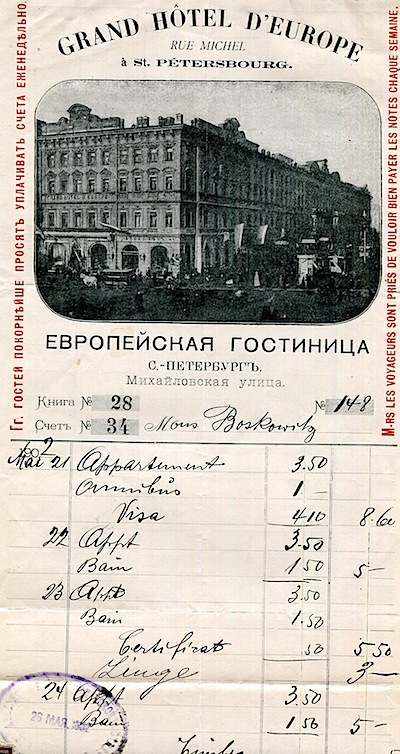 GRAND HÔTEL D'EUROPE
RUE MICHEL
à St. PÉTERSBOURG.
Гг. ГОСТЕЙ ПОКОРНѢЙШЕ ПРОСЯТЪ УПЛАЧИВАТЬ СЧЕТА ЕЖЕНЕДѢЛЬНО.
M-RS LES VOYAGEURS SONT PRIÉS DE VOULOIR BIEN PAYER LES NOTES CHAQUE SEMAINE.
ЕВРОПЕЙСКАЯ ГОСТИНИЦА
С.-ПЕТЕРБУРГЪ,
Михайловская улица.
Книга № 28 № 148
Счетъ № 34 Mons Boskowitz
Mai 21 Appartement 3.50
Omnibus 1 —
Visa 4 10 8.60
22 Appt 3.50
Bain 1 50 5 —
23 Appt 3.50
Bain 1.50
Certificat 50 5 50
Linge 3 —
24 Appt 3.50
Bain 1 50 5 —
26 МАЯ